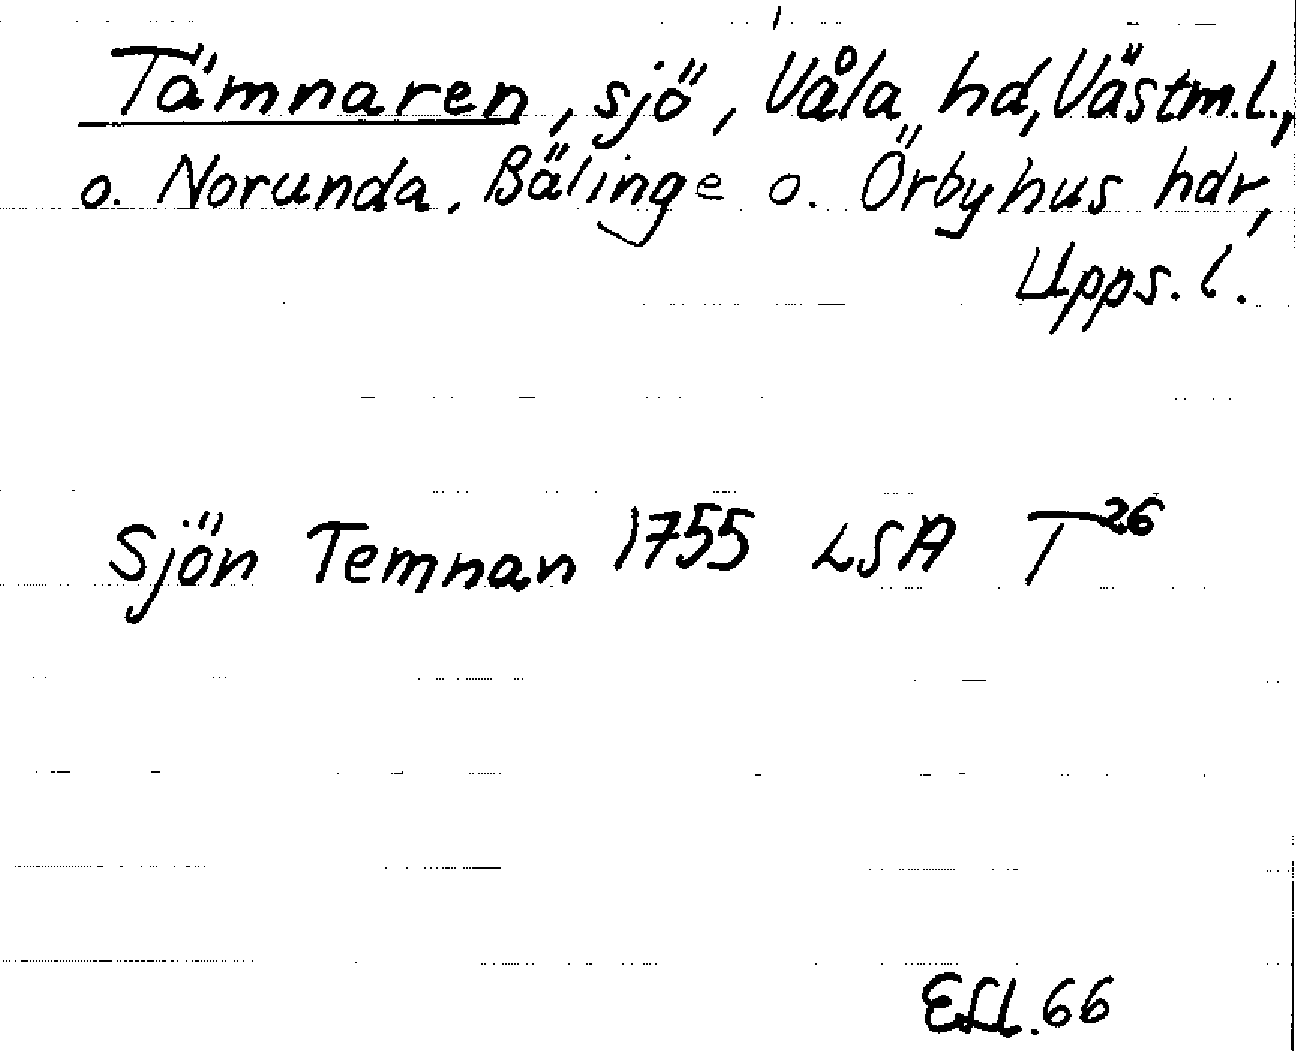 Tämnaren, sjö, Våla hd, Västm. l.,
o. Norunda, Bälinge o. Örbyhus hdr,
Upps. l.
Sjön Temnan 1755 LSA T26
66